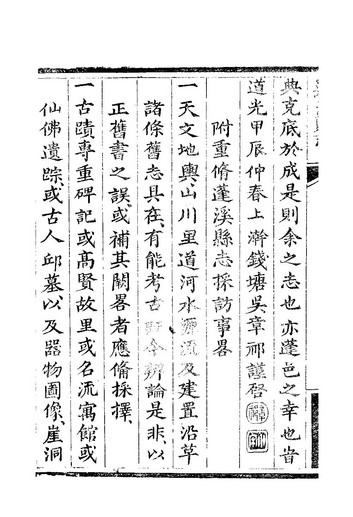 典克底於成是則余之志也亦蓬邑之幸也旹
道光甲辰仲春上澣錢塘吳章祁謹啓
附重脩蓬溪縣志採訪事畧
一天文地輿、山川里道河水源流及建置沿革
諸條舊志具在、有能考古証今辨論是非、以
正舊書之誤、或補其闕畧者應脩採擇、
一古蹟專重碑記或高賢故里或名流寓館或
仙佛遺踪、或古人邱墓以及器物圖像、崖洞